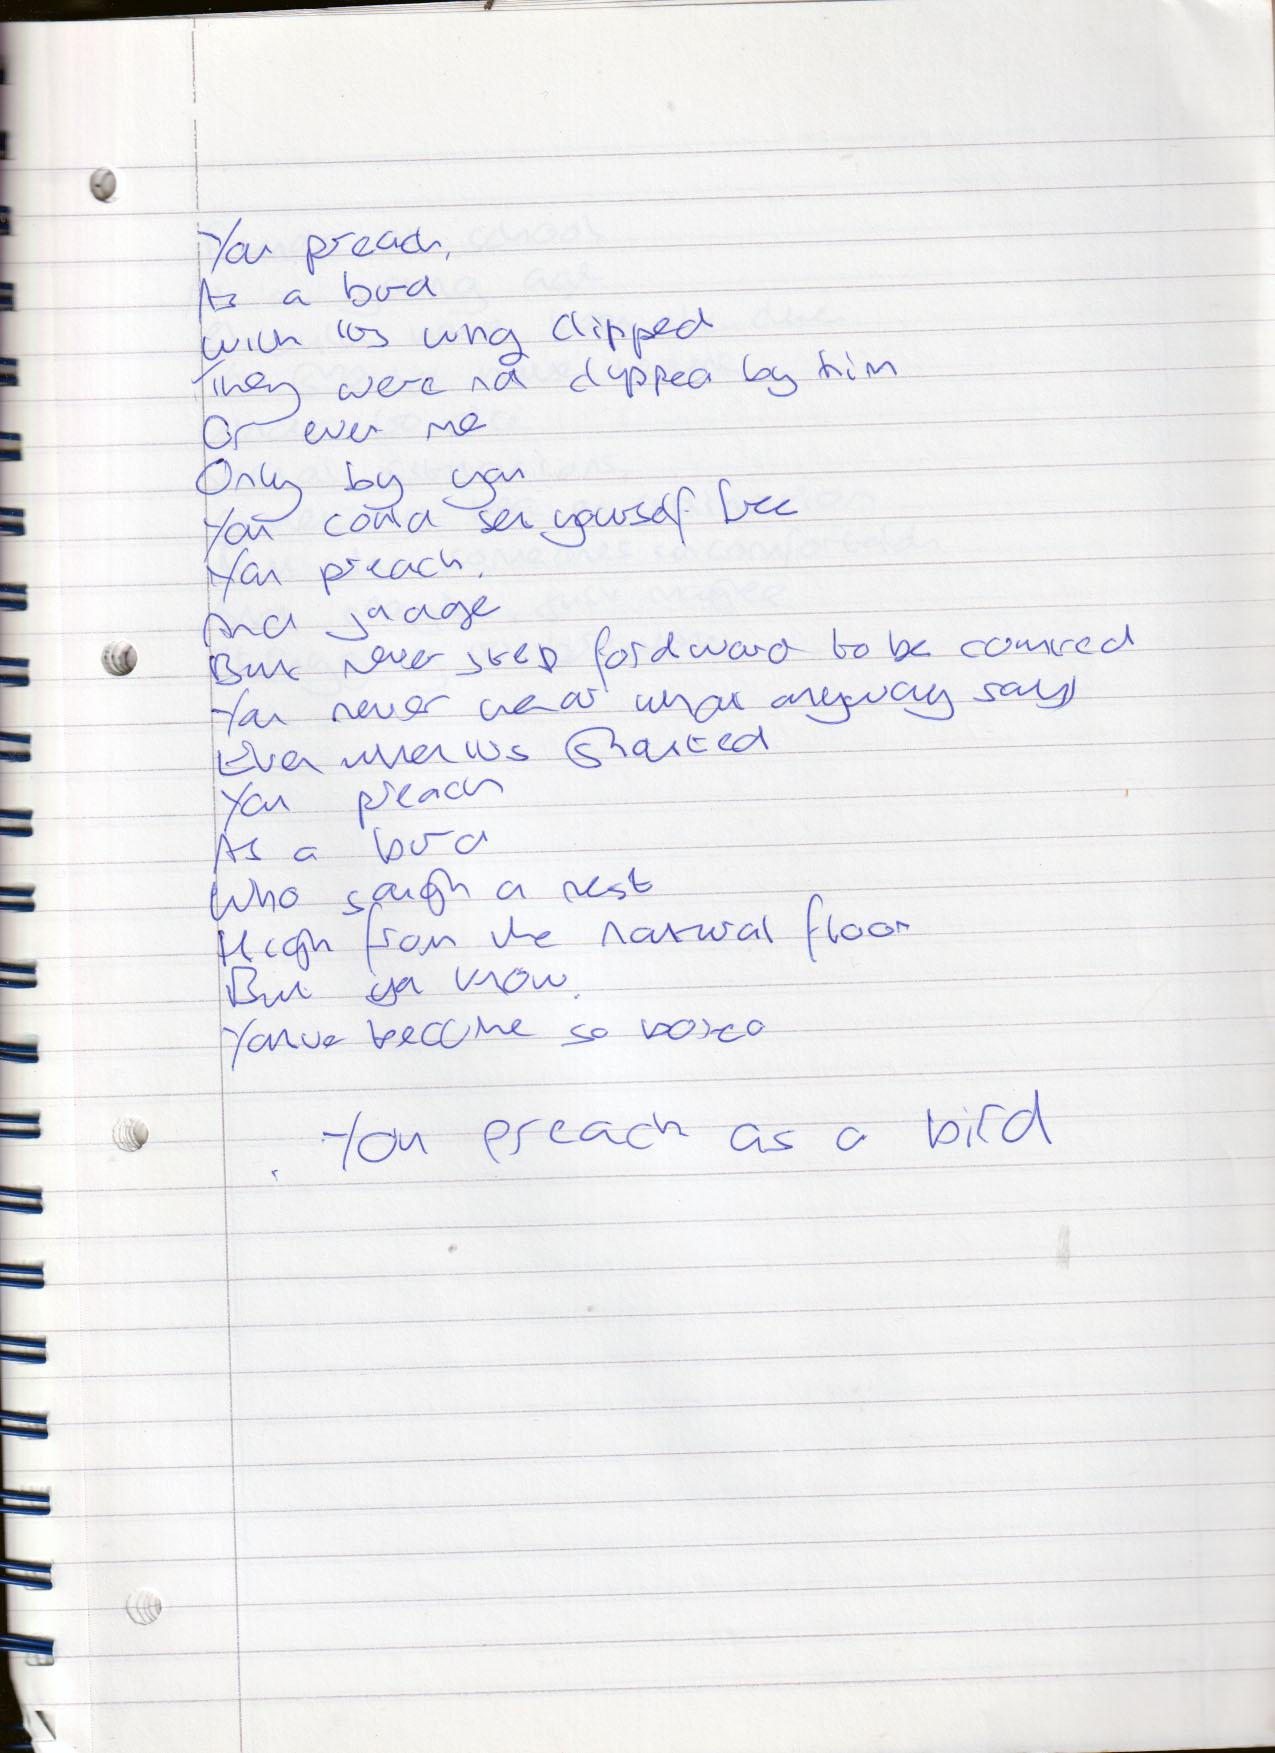 You preach,
As a bird
With its wing clipped
They were not clipped by him
Or even me
Only by you
You could set yourself free
You preach,
And judge
But never step fordward to be counted
You never hear what anyway says
Even when its shouted
You preach
As a bird
Who sough a nest
High from the natural floor
But ya know.
Youve become so bored
You preach as a bird